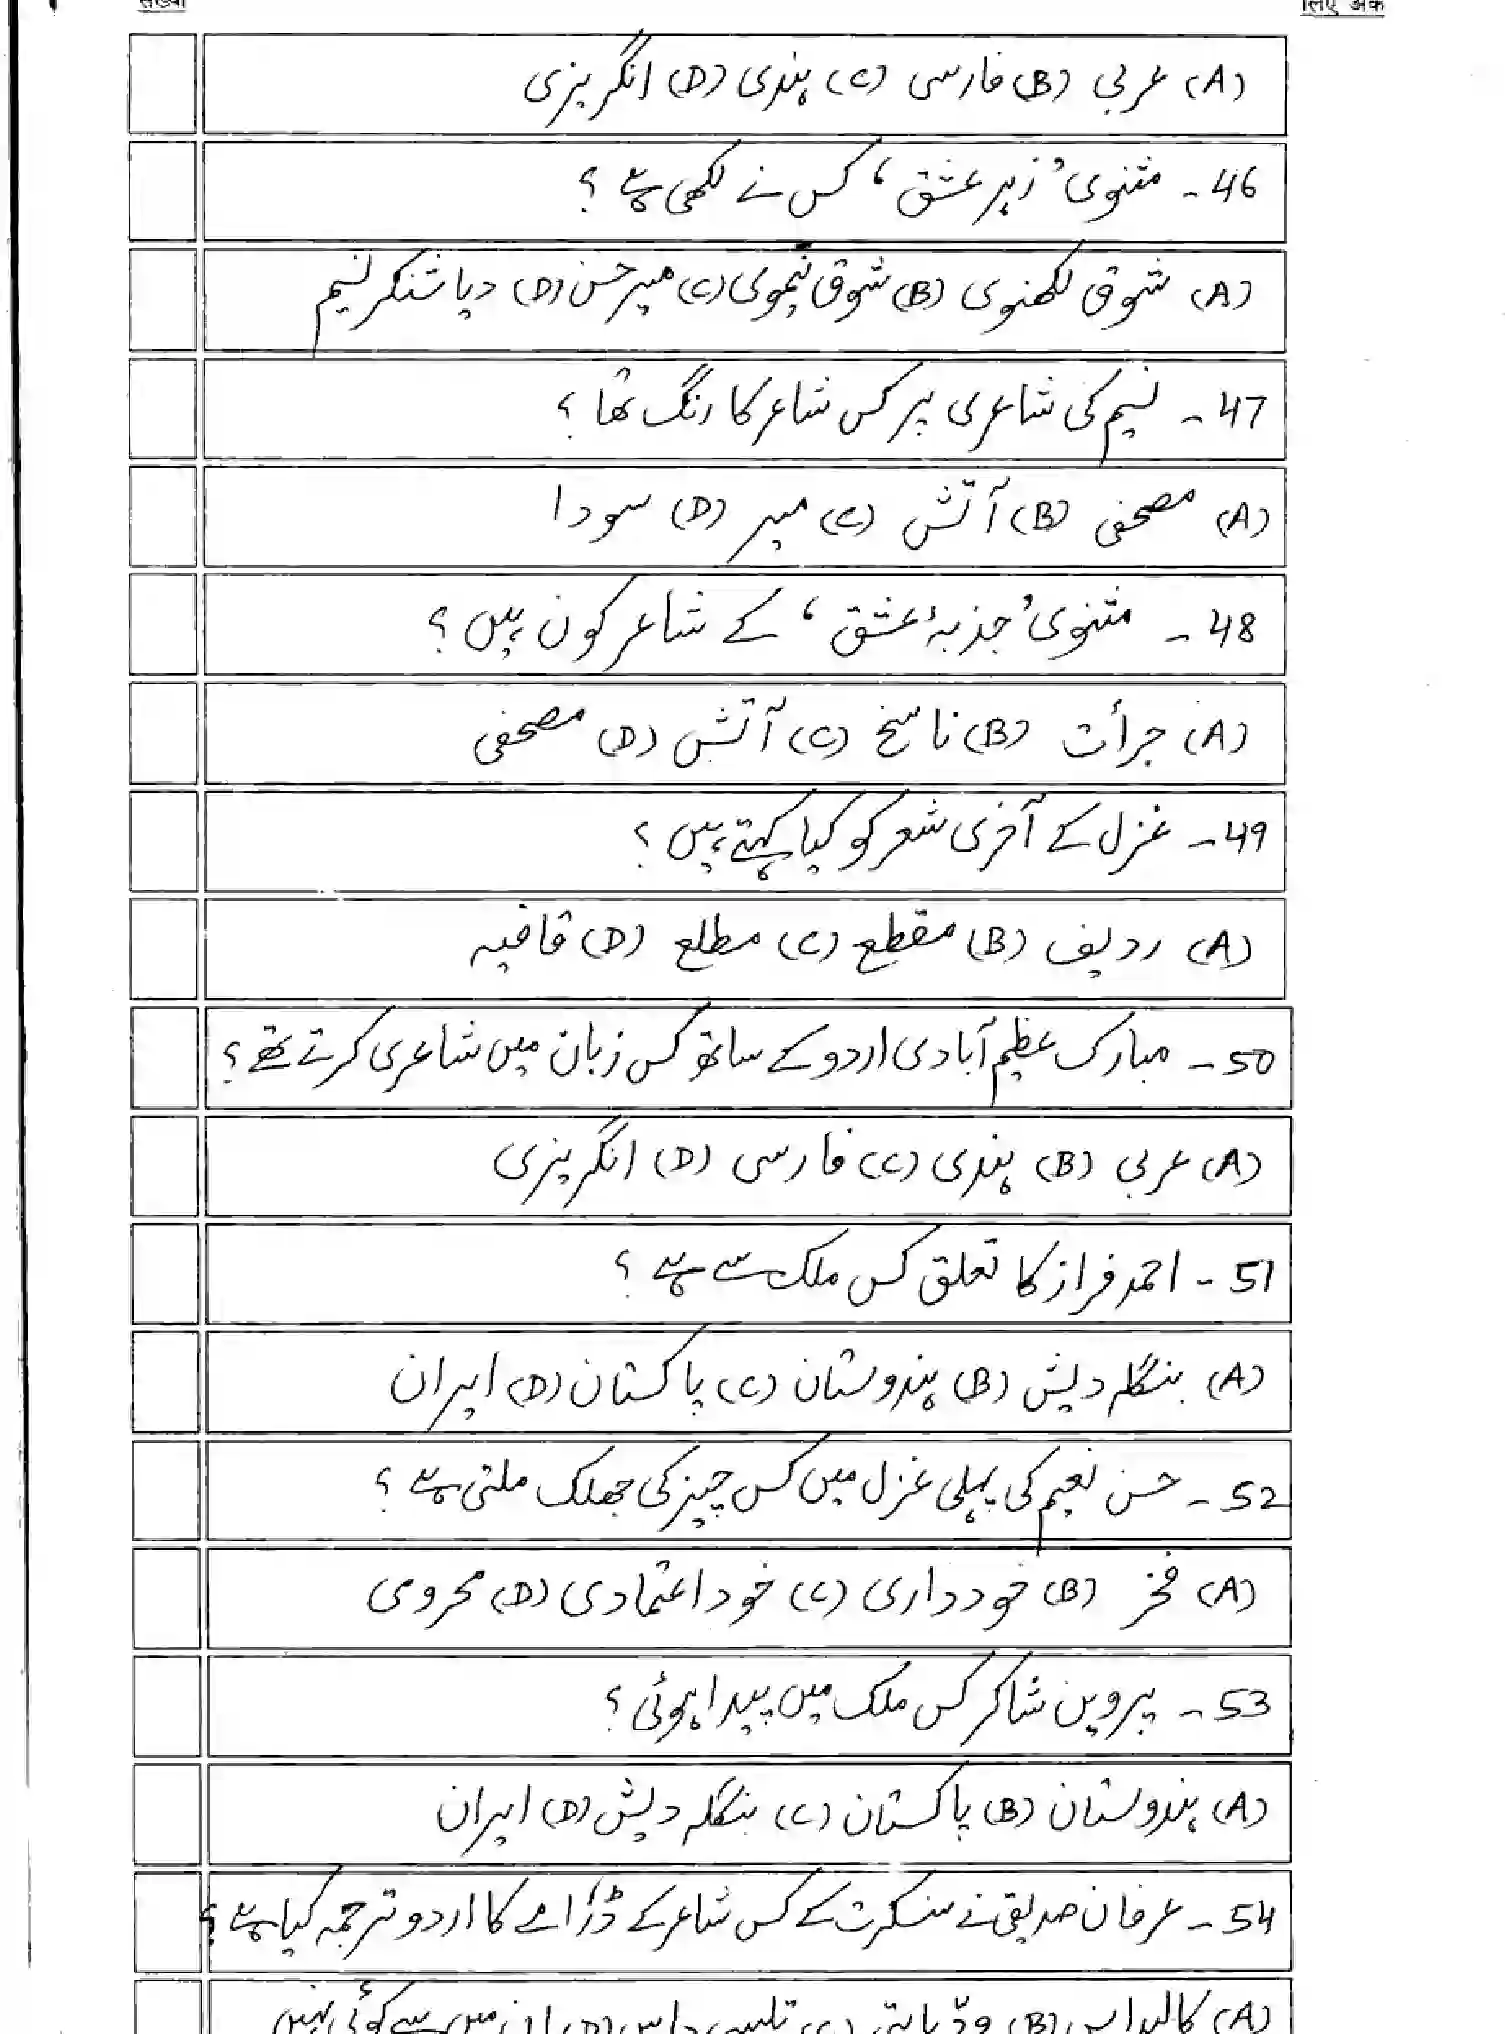 संख्या
लिए अंक
(A) عربی (B) فارسی (C) ہندی (D) انگریزی
46- مثنوی ’زہر عشق‘ کس نے لکھی ہے ؟
(A) شوق لکھنوی (B) شوق نیموی (C) میر حسن (D) دیا شنکر نسیم
47- نسیم کی شاعری پر کس شاعر کا رنگ تھا ؟
(A) مصحفی (B) آتش (C) میر (D) سودا
48- مثنوی ’جذبۂ عشق‘ کے شاعر کون ہیں ؟
(A) جرأت (B) ناسخ (C) آتش (D) مصحفی
49- غزل کے آخری شعر کو کیا کہتے ہیں ؟
(A) ردیف (B) مقطع (C) مطلع (D) قافیہ
50- مبارک عظیم آبادی اردو کے ساتھ کس زبان میں شاعری کرتے تھے ؟
(A) عربی (B) ہندی (C) فارسی (D) انگریزی
51- احمد فراز کا تعلق کس ملک سے ہے ؟
(A) بنگلہ دیش (B) ہندوستان (C) پاکستان (D) ایران
52- حسن نعیم کی پہلی غزل میں کس چیز کی جھلک ملتی ہے ؟
(A) فخر (B) خودداری (C) خود اعتمادی (D) محرومی
53- پروین شاکر کس ملک میں پیدا ہوئی ؟
(A) ہندوستان (B) پاکستان (C) بنگلہ دیش (D) ایران
54- عرفان صدیقی نے سنسکرت کے کس شاعر کے ڈرامے کا اردو ترجمہ کیا ہے ؟
(A) کالیداس (B) ودیاپتی (C) تلسی داس (D) ان میں سے کوئی نہیں